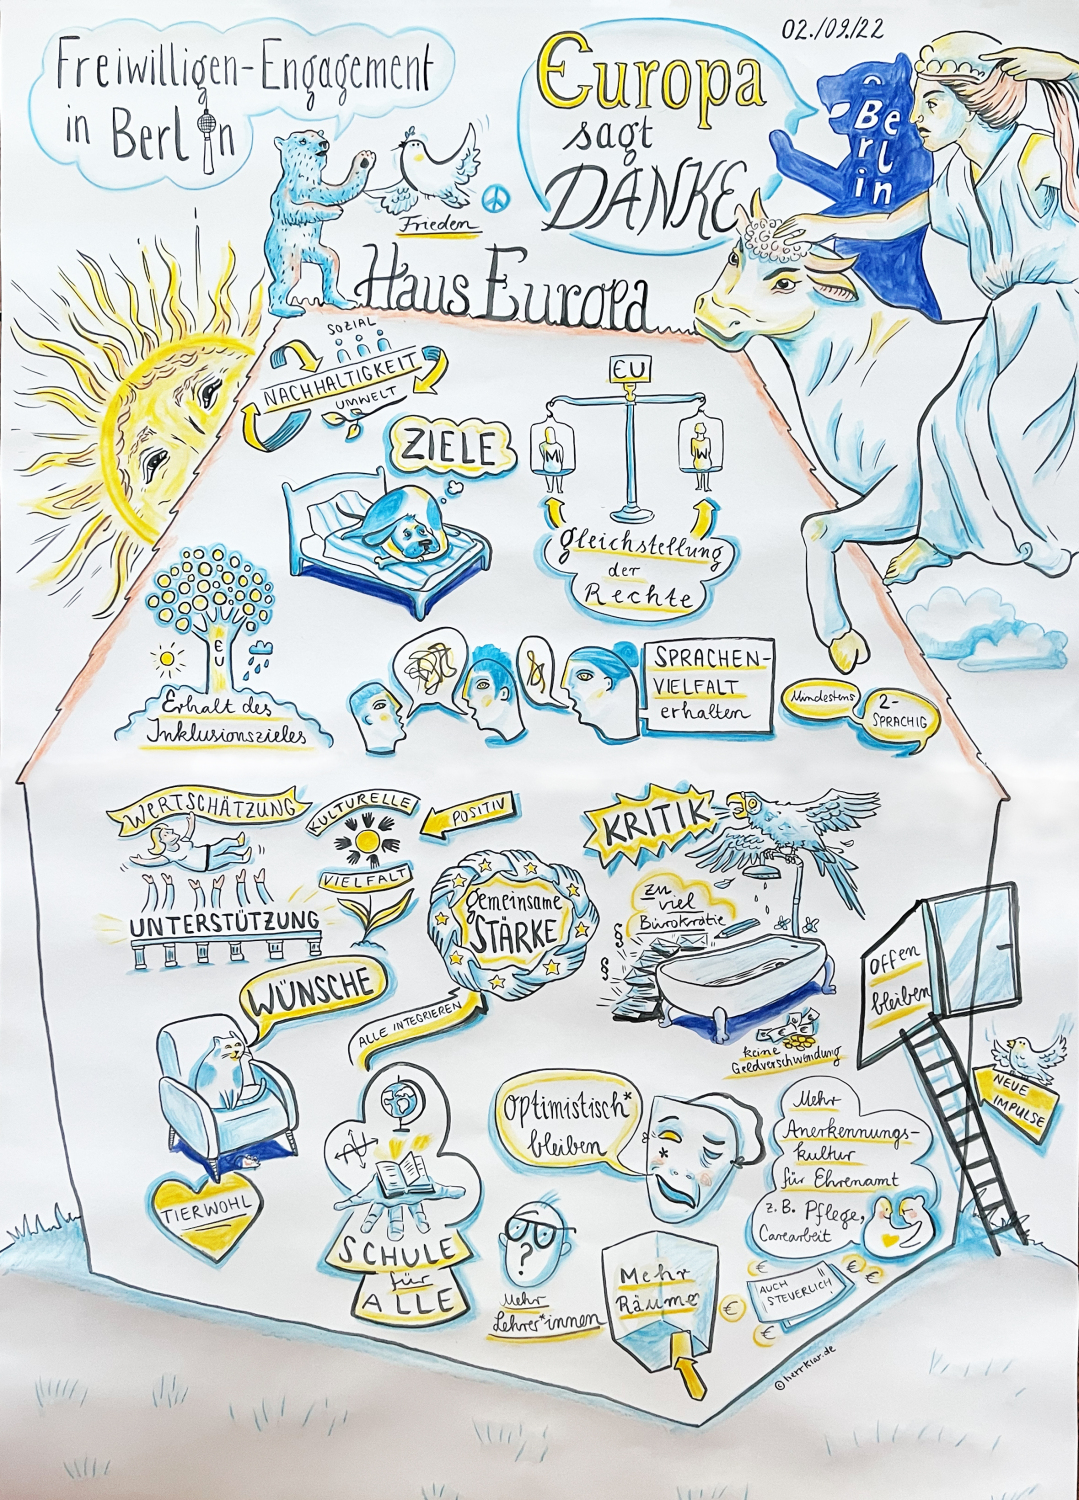 02./09./22
Freiwilligen-Engagement
in Berlin
Europa
sagt
DANKE
Berlin
Frieden
Haus Europa
SOZIAL
NACHHALTIGKEIT
UMWELT
ZIELE
EU
M
W
Gleichstellung
der
Rechte
EU
Erhalt des
Inklusionszieles
SPRACHEN-
VIELFALT
erhalten
Mindestens
2-
SPRACHIG
WERTSCHÄTZUNG
UNTERSTÜTZUNG
KULTURELLE
VIELFALT
POSITIV
gemeinsame
STÄRKE
ALLE INTEGRIEREN
KRITIK
zu
viel
Bürokratie
§
§
keine
Geldverschwendung
offen
bleiben
NEUE
IMPULSE
WÜNSCHE
TIERWOHL
SCHULE
für
ALLE
optimistisch*
bleiben
*
?
Mehr
Lehrer*innen
Mehr
Räume
Mehr
Anerkennungs-
kultur
für Ehrenamt
z.B. Pflege,
Carearbeit
€
€
€
€
€
AUCH
STEUERLICH!
© herrklar.de